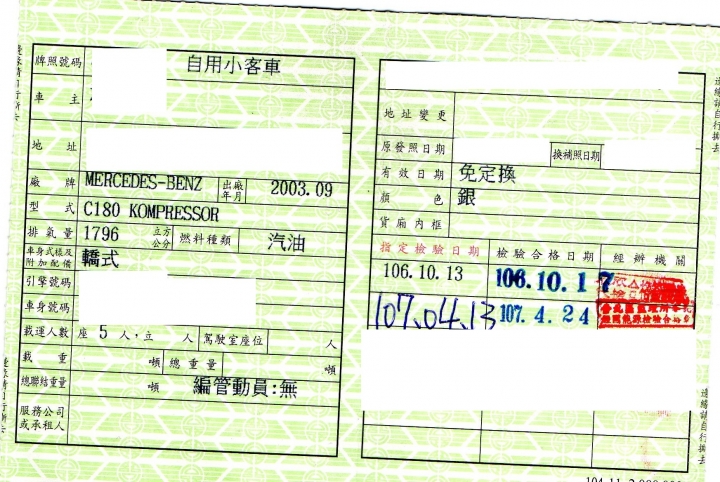 牌照號碼 自用小客車
車主
地址
廠牌 MERCEDES-BENZ 出廠年月 2003.09
型式 C180 KOMPRESSOR
排氣量 1796 立方公分 燃料種類 汽油
車身式樣及附加配備 轎式
引擎號碼
車身號碼
載運人數 座 5 人,立 人 駕駛室座位 人
載重 噸 總重量 噸
總聯結重量 噸 編管動員:無
服務公司或承租人
地址變更
原發照日期 換補照日期
有效日期 免定換
顏色 銀
貨廂內框
指定檢驗日期 檢驗合格日期 經辦機關
106.10.13 106.10.17
107.04.13 107.4.24
邊緣請自行撕去